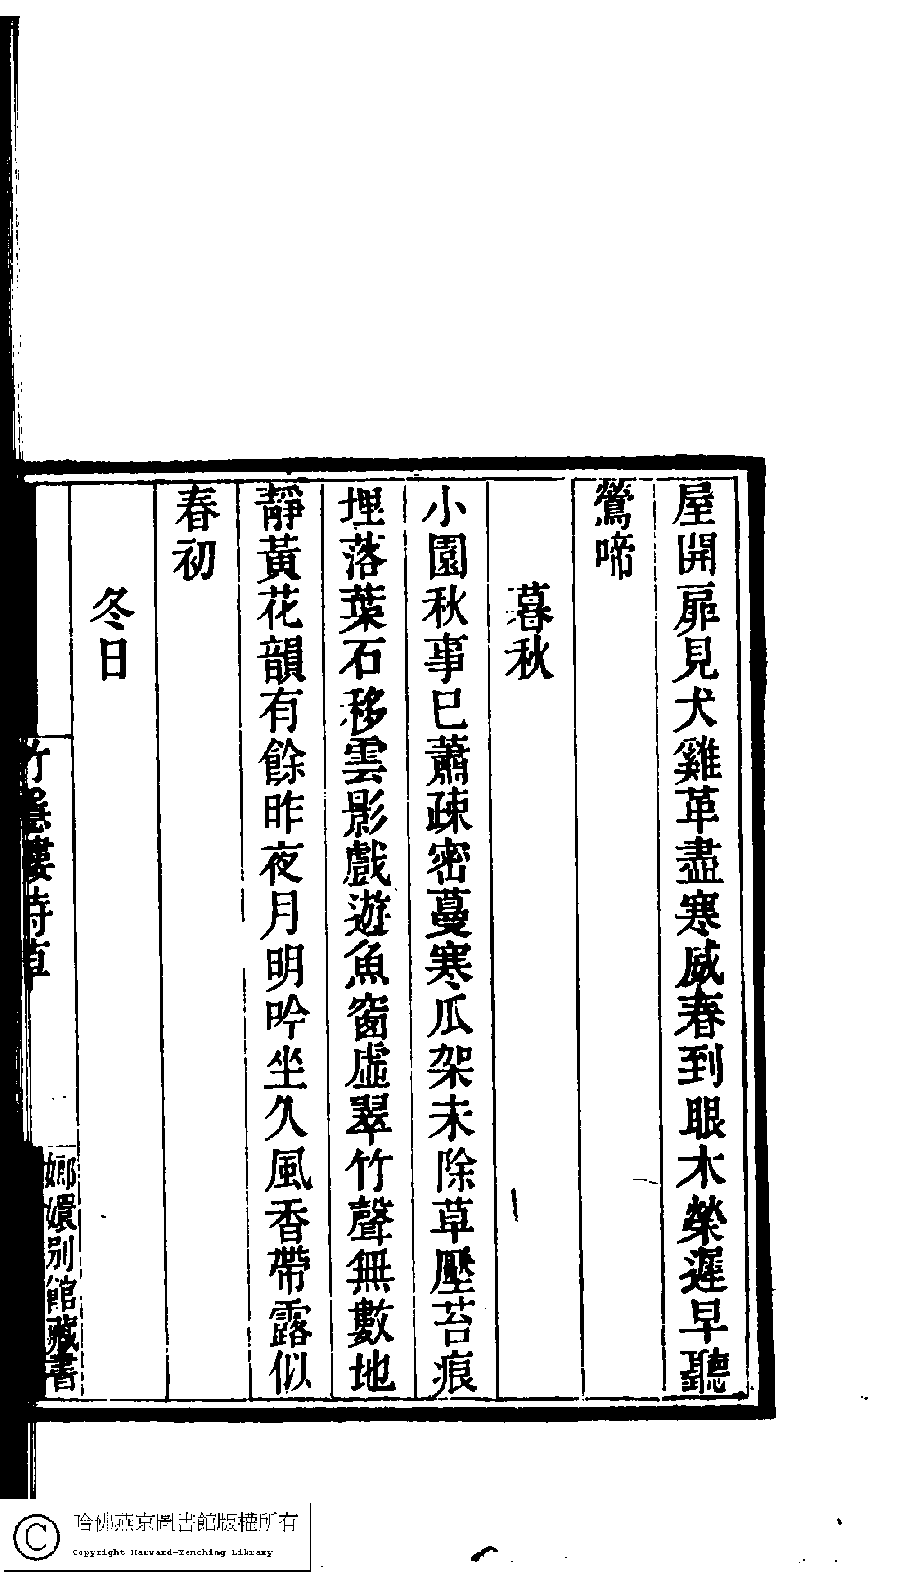 屋開扉見犬雞革盡寒威春到眼木榮遲早聽
鶯啼
暮秋
小園秋事已蕭疎密蔓寒瓜架未除草壓苔痕
埋落葉石移雲影戲遊魚窗虛翠竹聲無數地
靜黃花韻有餘昨夜月明吟坐久風香帶露似
春初
冬日
竹隱樓詩草
嫏嬛別館藏書
哈佛燕京圖書館版權所有
Copyright Harvard-Yenching Library